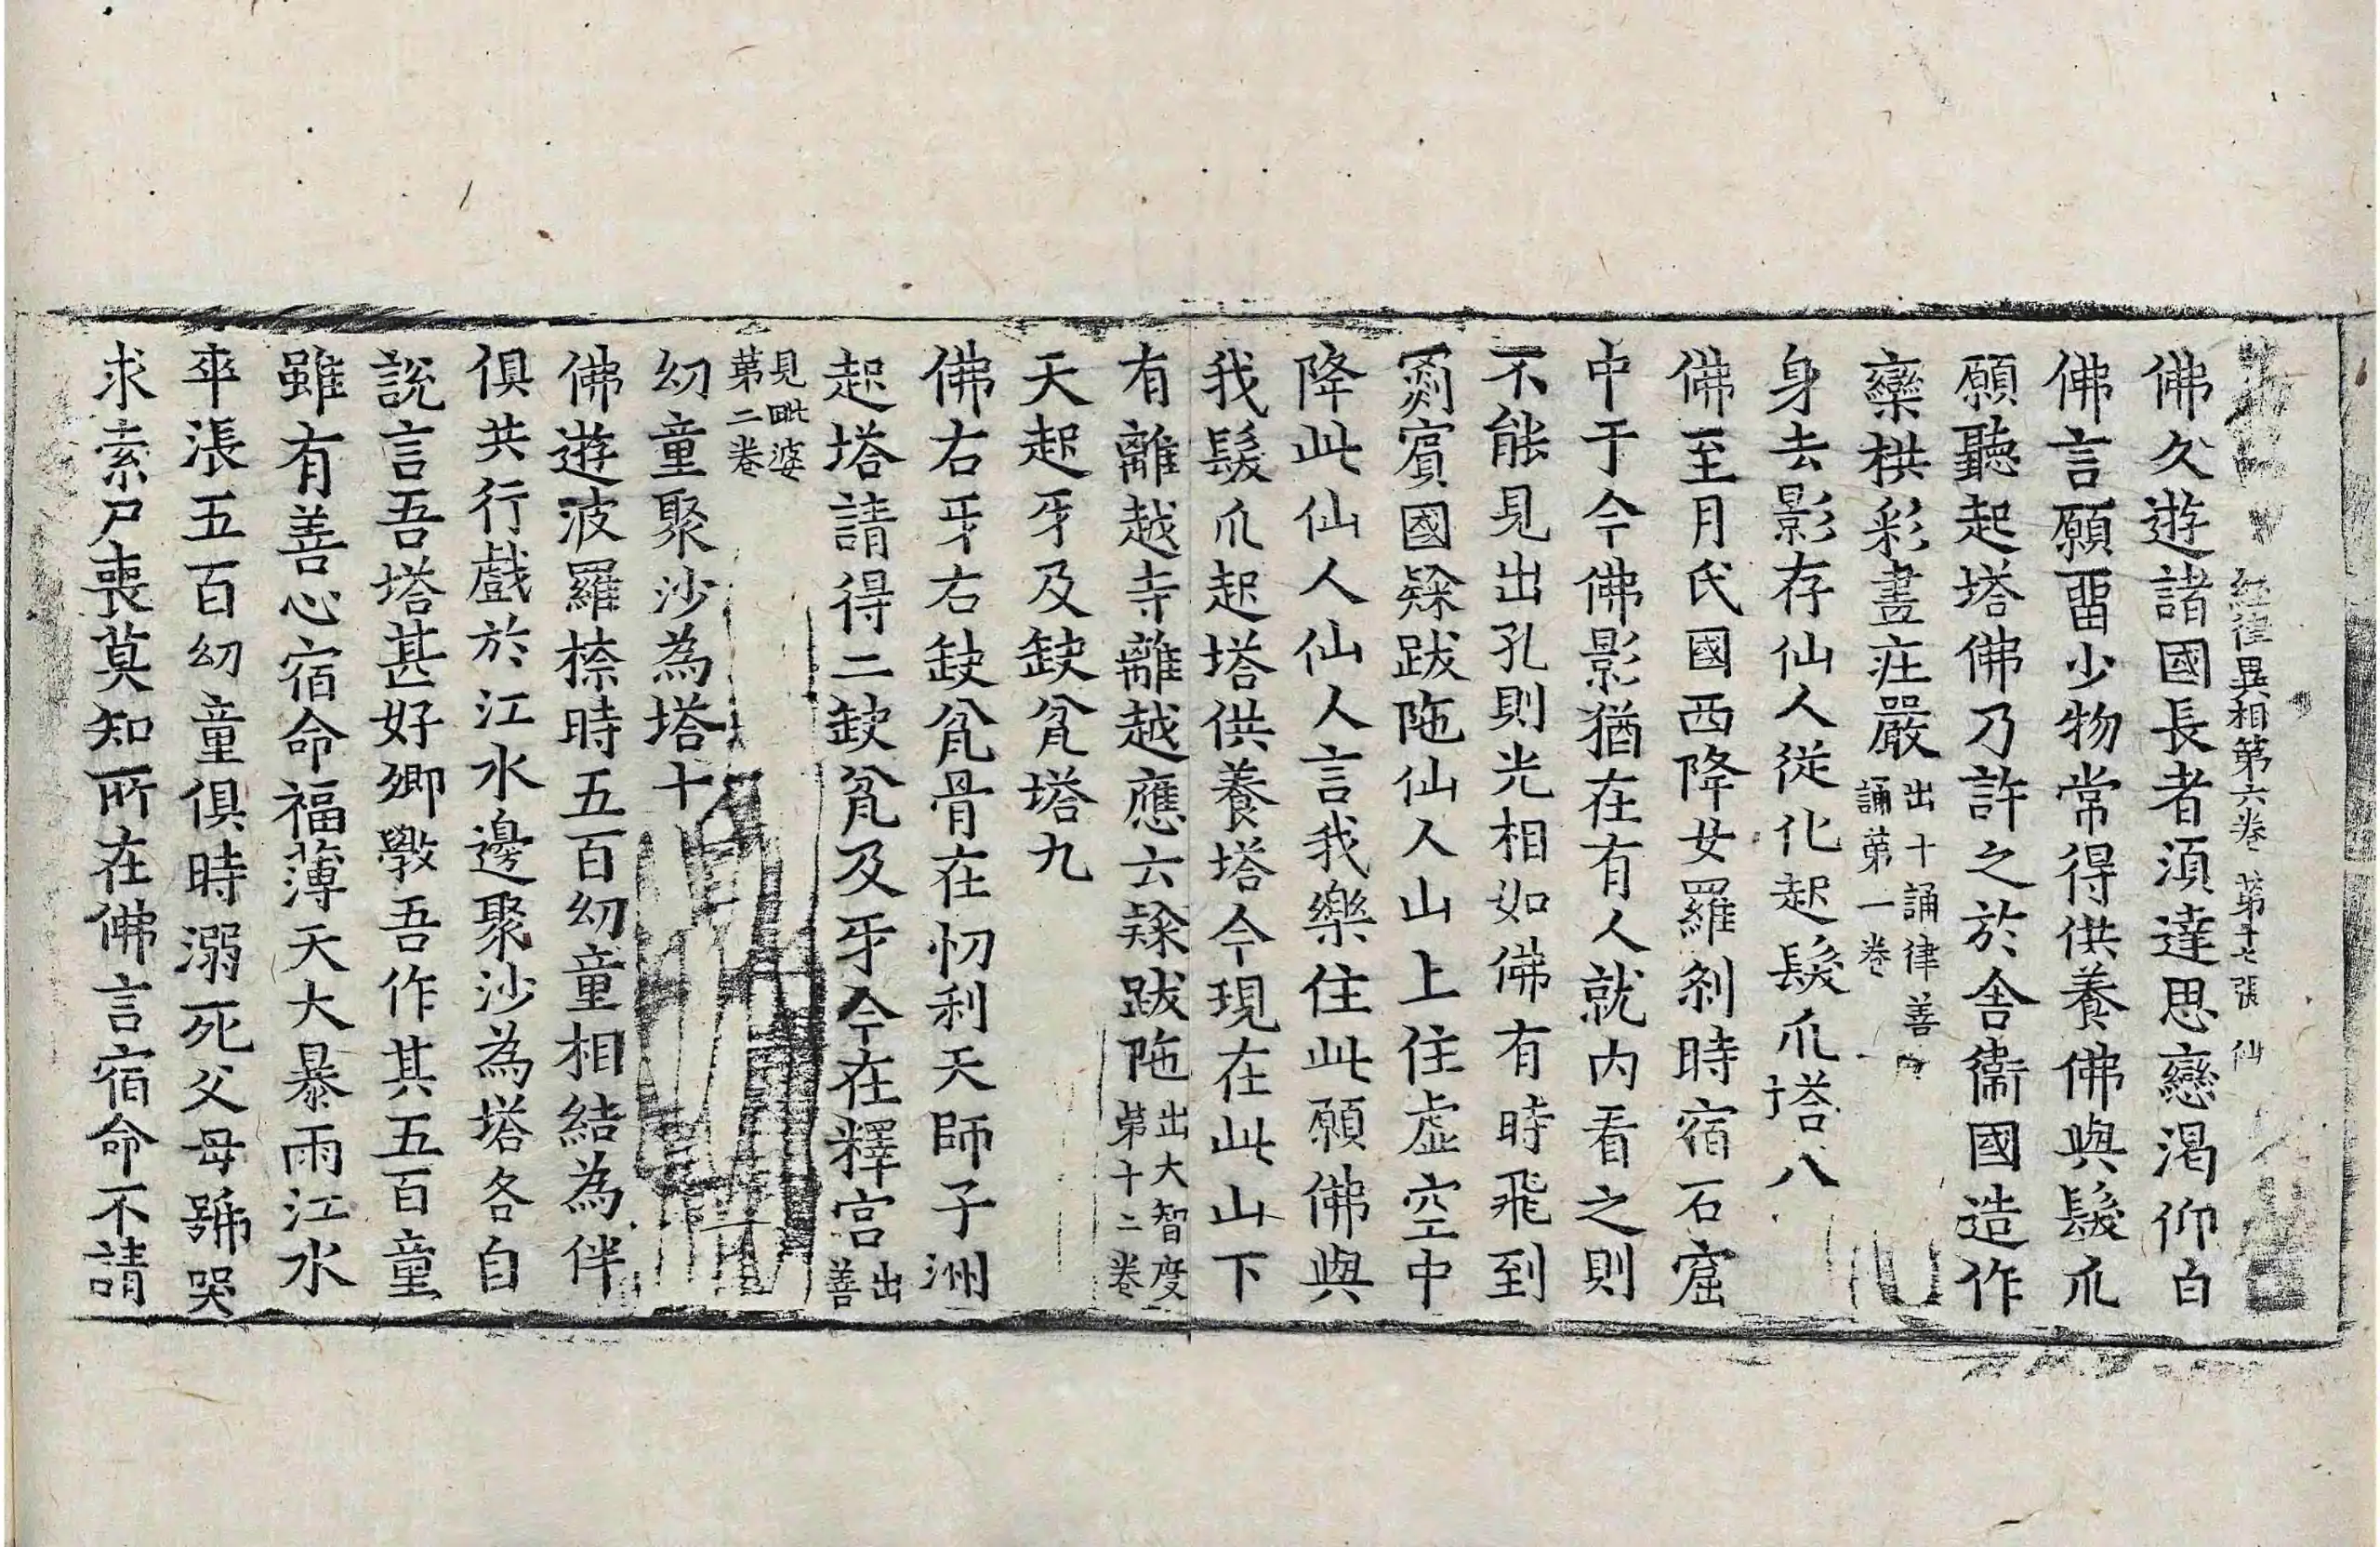 經律異相第六卷 第十七張 仙
佛久遊諸國長者湏達思戀渴仰白
佛言願畱少物常得供養佛與髮爪
願聽起塔佛乃許之於舍衞國造作
欒栱彩畫莊嚴出十誦律善
誦第一卷
身去影存仙人從化起髮爪塔八
佛至月氏國西降女羅剎時宿石窟
中于今佛影猶在有人就内看之則
不能見出孔則光相如佛有時飛到
罽賓國隸跋陁仙人山上住虛空中
降此仙人仙人言我樂住此願佛與
我髮爪起塔供養塔今現在此山下
有離越寺離越應云隸跋陁出大智度
第十二卷
天起牙及缺瓫塔九
佛右牙右缺瓫骨在忉利天師子洲
起塔請得二缺瓫及牙今在釋宫出善
見毗婆
第二卷
幼童聚沙為塔十
佛遊波羅㮈時五百幼童相結為伴
俱共行戲於江水邊聚沙為塔各自
說言吾塔甚好卿斆吾作其五百童
雖有善心宿命福薄天大暴雨江水
卒漲五百幼童俱時溺死父母號哭
求索尸喪莫知所在佛言宿命不請